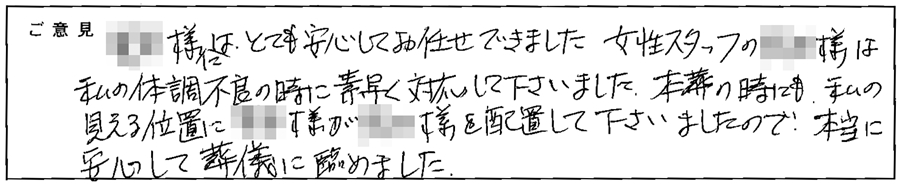 ご意見
様はとても安心してお任せできました 女性スタッフの 様は
私の体調不良の時に素早く対応して下さいました。本葬の時にも、私の
見える位置に 様が 様を配置して下さいましたので、本当に
安心して葬儀に臨めました。